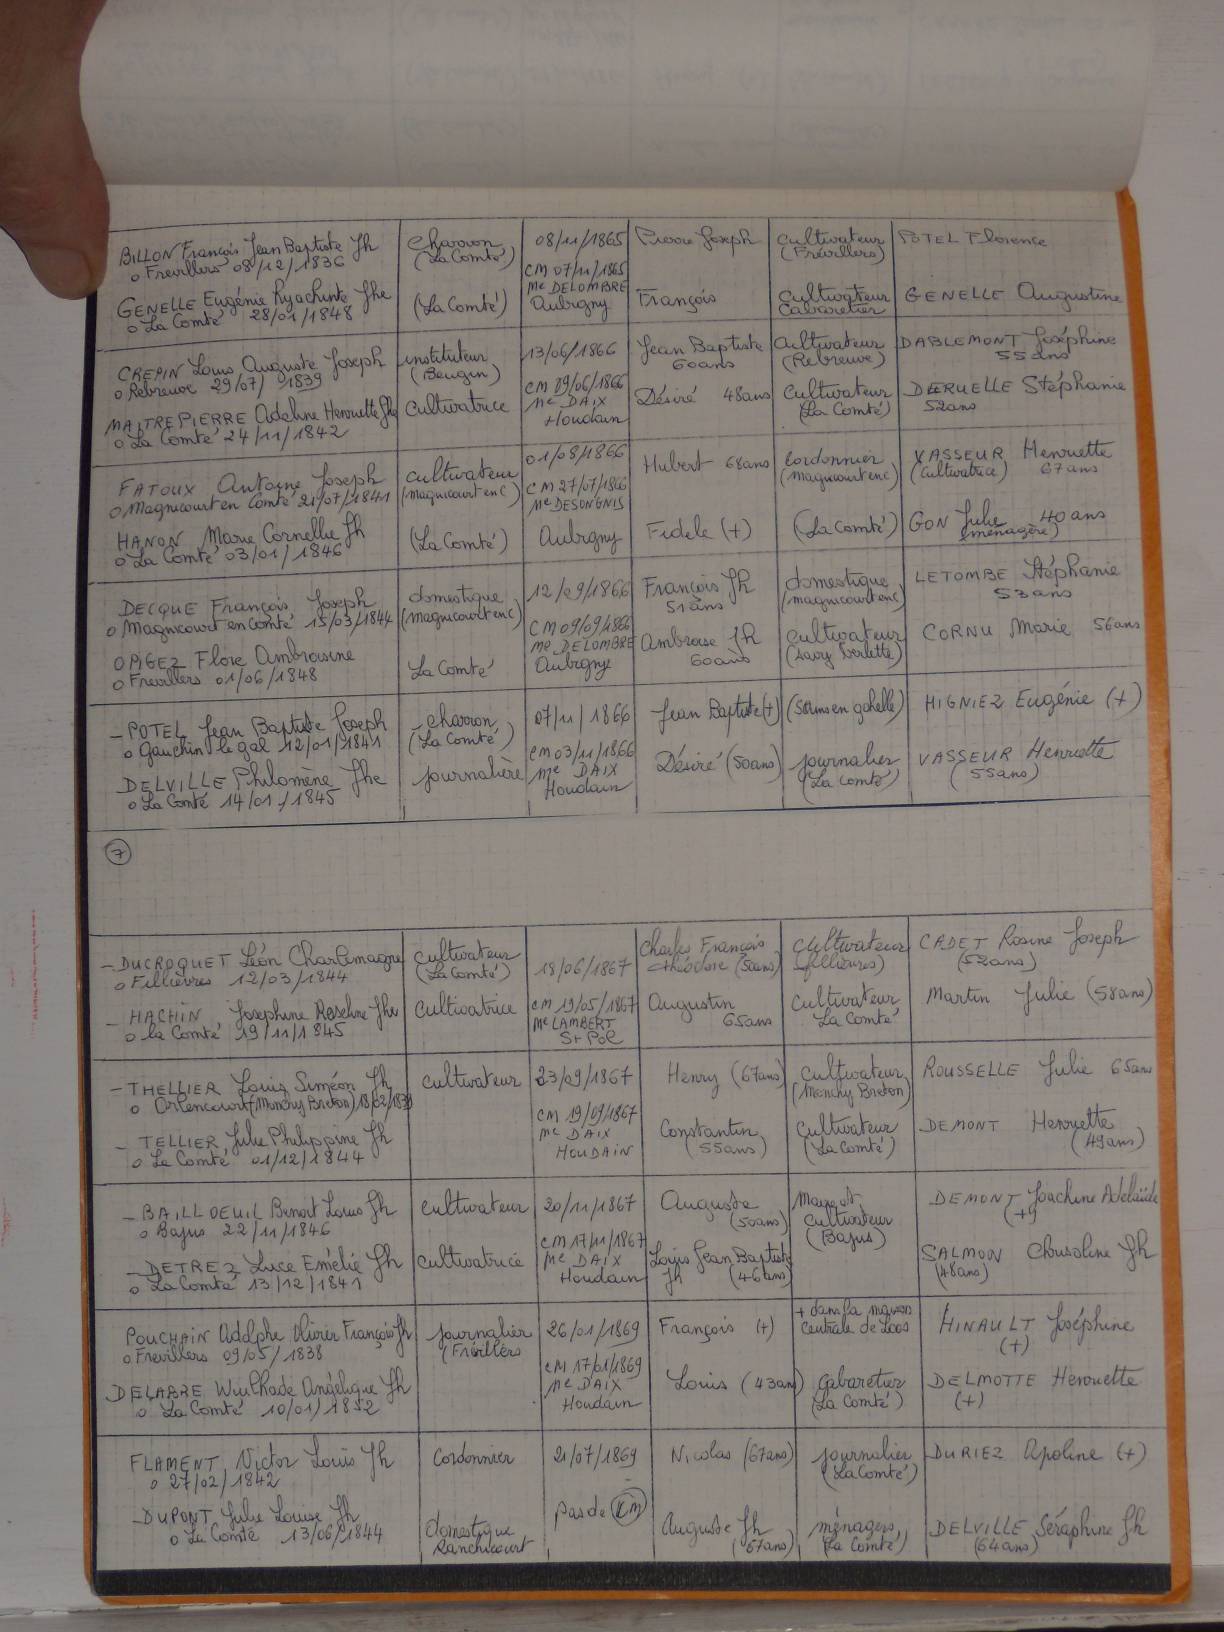 BILLON François Jean Baptiste Jh
o Frevillers 08/12/1836
charron
(La Comté)
08/11/1865
CM 07/11/1865
Me DELOMBRE
Aubigny
Pierre Joseph
cultivateur
(Frévillers)
POTEL Florence
GENELLE Eugénie Hyachinte Jhe
o La Comté 28/01/1848
(La Comté)
François
Cultivateur
Cabaretier
GENELLE Augustine
CREPIN Louis Auguste Joseph
o Rebreuve 29/07/1839
instituteur
(Beugin)
13/06/1866
CM 09/06/1866
Me DAIX
Houdain
Jean Baptiste
60ans
Cultivateur
(Rebreuve)
DABLEMONT Joséphine
55 ans
MAITREPIERRE Adeline Henriette Jhe
o La Comté 24/11/1842
Cultivatrice
Désiré 48ans
Cultivateur
(La Comté)
DERUELLE Stéphanie
52ans
FATOUX Antoine Joseph
o Magnicourt en Comté 21/07/1841
cultivateur
(Magnicourt en c)
01/08/1866
CM 27/07/1866
Me DESONGNIS
Aubigny
Hubert 68ans
Cordonnier
(Magnicourt en c)
VASSEUR Henriette
(Cultivatrice) 67ans
HANON Marie Cornellie Jh
o La Comté 03/01/1846
(La Comté)
Fidele (+)
(La Comté)
GON Julie 40 ans
(ménagère)
DECQUE François Joseph
o Magnicourt en Comté 15/03/1844
domestique
(Magnicourt en c)
12/09/1866
CM 09/09/1866
Me DELOMBRE
Aubigny
François Jh
51ans
domestique
(Magnicourt en c)
LETOMBE Stéphanie
53 ans
OPIGEZ Flore Ambroisine
o Frevillers 01/06/1848
La Comté
Ambroise Jh
60ans
cultivateur
(Savy Berlette)
CORNU Marie 56ans
- POTEL Jean Baptiste Joseph
o Gauchin le gal 12/01/1841
- charron
(La Comté)
07/11/1866
CM 03/11/1866
Me DAIX
Houdain
Jean Baptiste (+)
(Servins en gohelle)
HIGNIEZ Eugénie (+)
DELVILLE Philomène Jhe
o La Comté 14/01/1845
journalière
Désiré (50ans)
journalier
(La Comté)
VASSEUR Henriette
(55ans)
7
- DUCROQUET Léon Charlemagne
o Fillièvres 12/03/1844
cultivateur
(La Comté)
18/06/1867
CM 19/05/1867
Me LAMBERT
St Pol
Charles François
théodore (50ans)
Cultivateur
(fillièvres)
CADET Rosine Joseph
(52ans)
- HACHIN Josephine Roseline Jhe
o la Comté 19/11/1845
Cultivatrice
Augustin
65ans
Cultivateur
La Comté
Martin Julie (58ans)
- THELLIER Louis Siméon Jh
o Ortencourt (Monchy Breton) 18/02/1839
cultivateur
23/09/1867
CM 19/09/1867
Me DAIX
HOUDAIN
Henry (67ans)
Cultivateur
(Monchy Breton)
ROUSSELLE Julie 65ans
- TELLIER Julie Philippine Jh
o La Comté 01/12/1844
Constantin
(55ans)
Cultivateur
(La Comté)
DEMONT Henriette
(49ans)
- BAILLOEUIL Benoit Louis Jh
o Bajus 22/11/1846
cultivateur
20/11/1867
CM 17/11/1867
Me DAIX
Houdain
Auguste
(50ans)
Cultivateur
(Bajus)
DEMONT Joachine Adelaïde
(+)
- DETREZ Luce Emélie Jh
o La Comté 13/12/1841
Cultivatrice
Louis Jean Baptiste
Jh (46ans)
SALMON Chrisoline Jh
(48ans)
POUCHAIN Adolphe Olivier François Jh
o Frevillers 09/05/1838
journalier
(Frévillers
26/01/1869
CM 17/01/1869
Me DAIX
Houdain
François (+)
+ dans la maison
centrale de Loos
HINAULT Joséphine
(+)
DELABRE Wulhade Angélique Jh
o La Comté 10/01/1852
Louis (43ans)
Cabaretier
(La Comté)
DELMOTTE Henriette
(+)
FLAMENT Victor Louis Jh
o 27/02/1842
Cordonnier
21/07/1869
pas de CM
Nicolas (67ans)
journalier
(La Comté)
DURIEZ Apoline (+)
- DUPONT Julie Louise Jh
o La Comté 13/06/1844
domestique
Ranchicourt
Auguste Jh
(67ans)
ménager
(La Comté)
DELVILLE Séraphine Jh
(64ans)